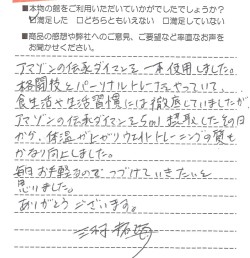 ■本物の館をご利用いただいていかがでしたでしょうか？
☑満足した □どちらともいえない □満足していない
■商品の感想や弊社へのご意見、ご要望など率直なお声を
お聞かせください。
アマゾンの伝承ダイマンを一本使用しました。
格闘技とパーソナルトレーナーをやっていて、
食生活や生活習慣には徹底していましたが
アマゾンの伝承ダイマンを5ml摂取したその日
から、体温が上がりウェイトトレーニングの質も
かなり向上しました。
毎日お手軽なのでつづけていきたいと
思いました。
ありがとうございます。